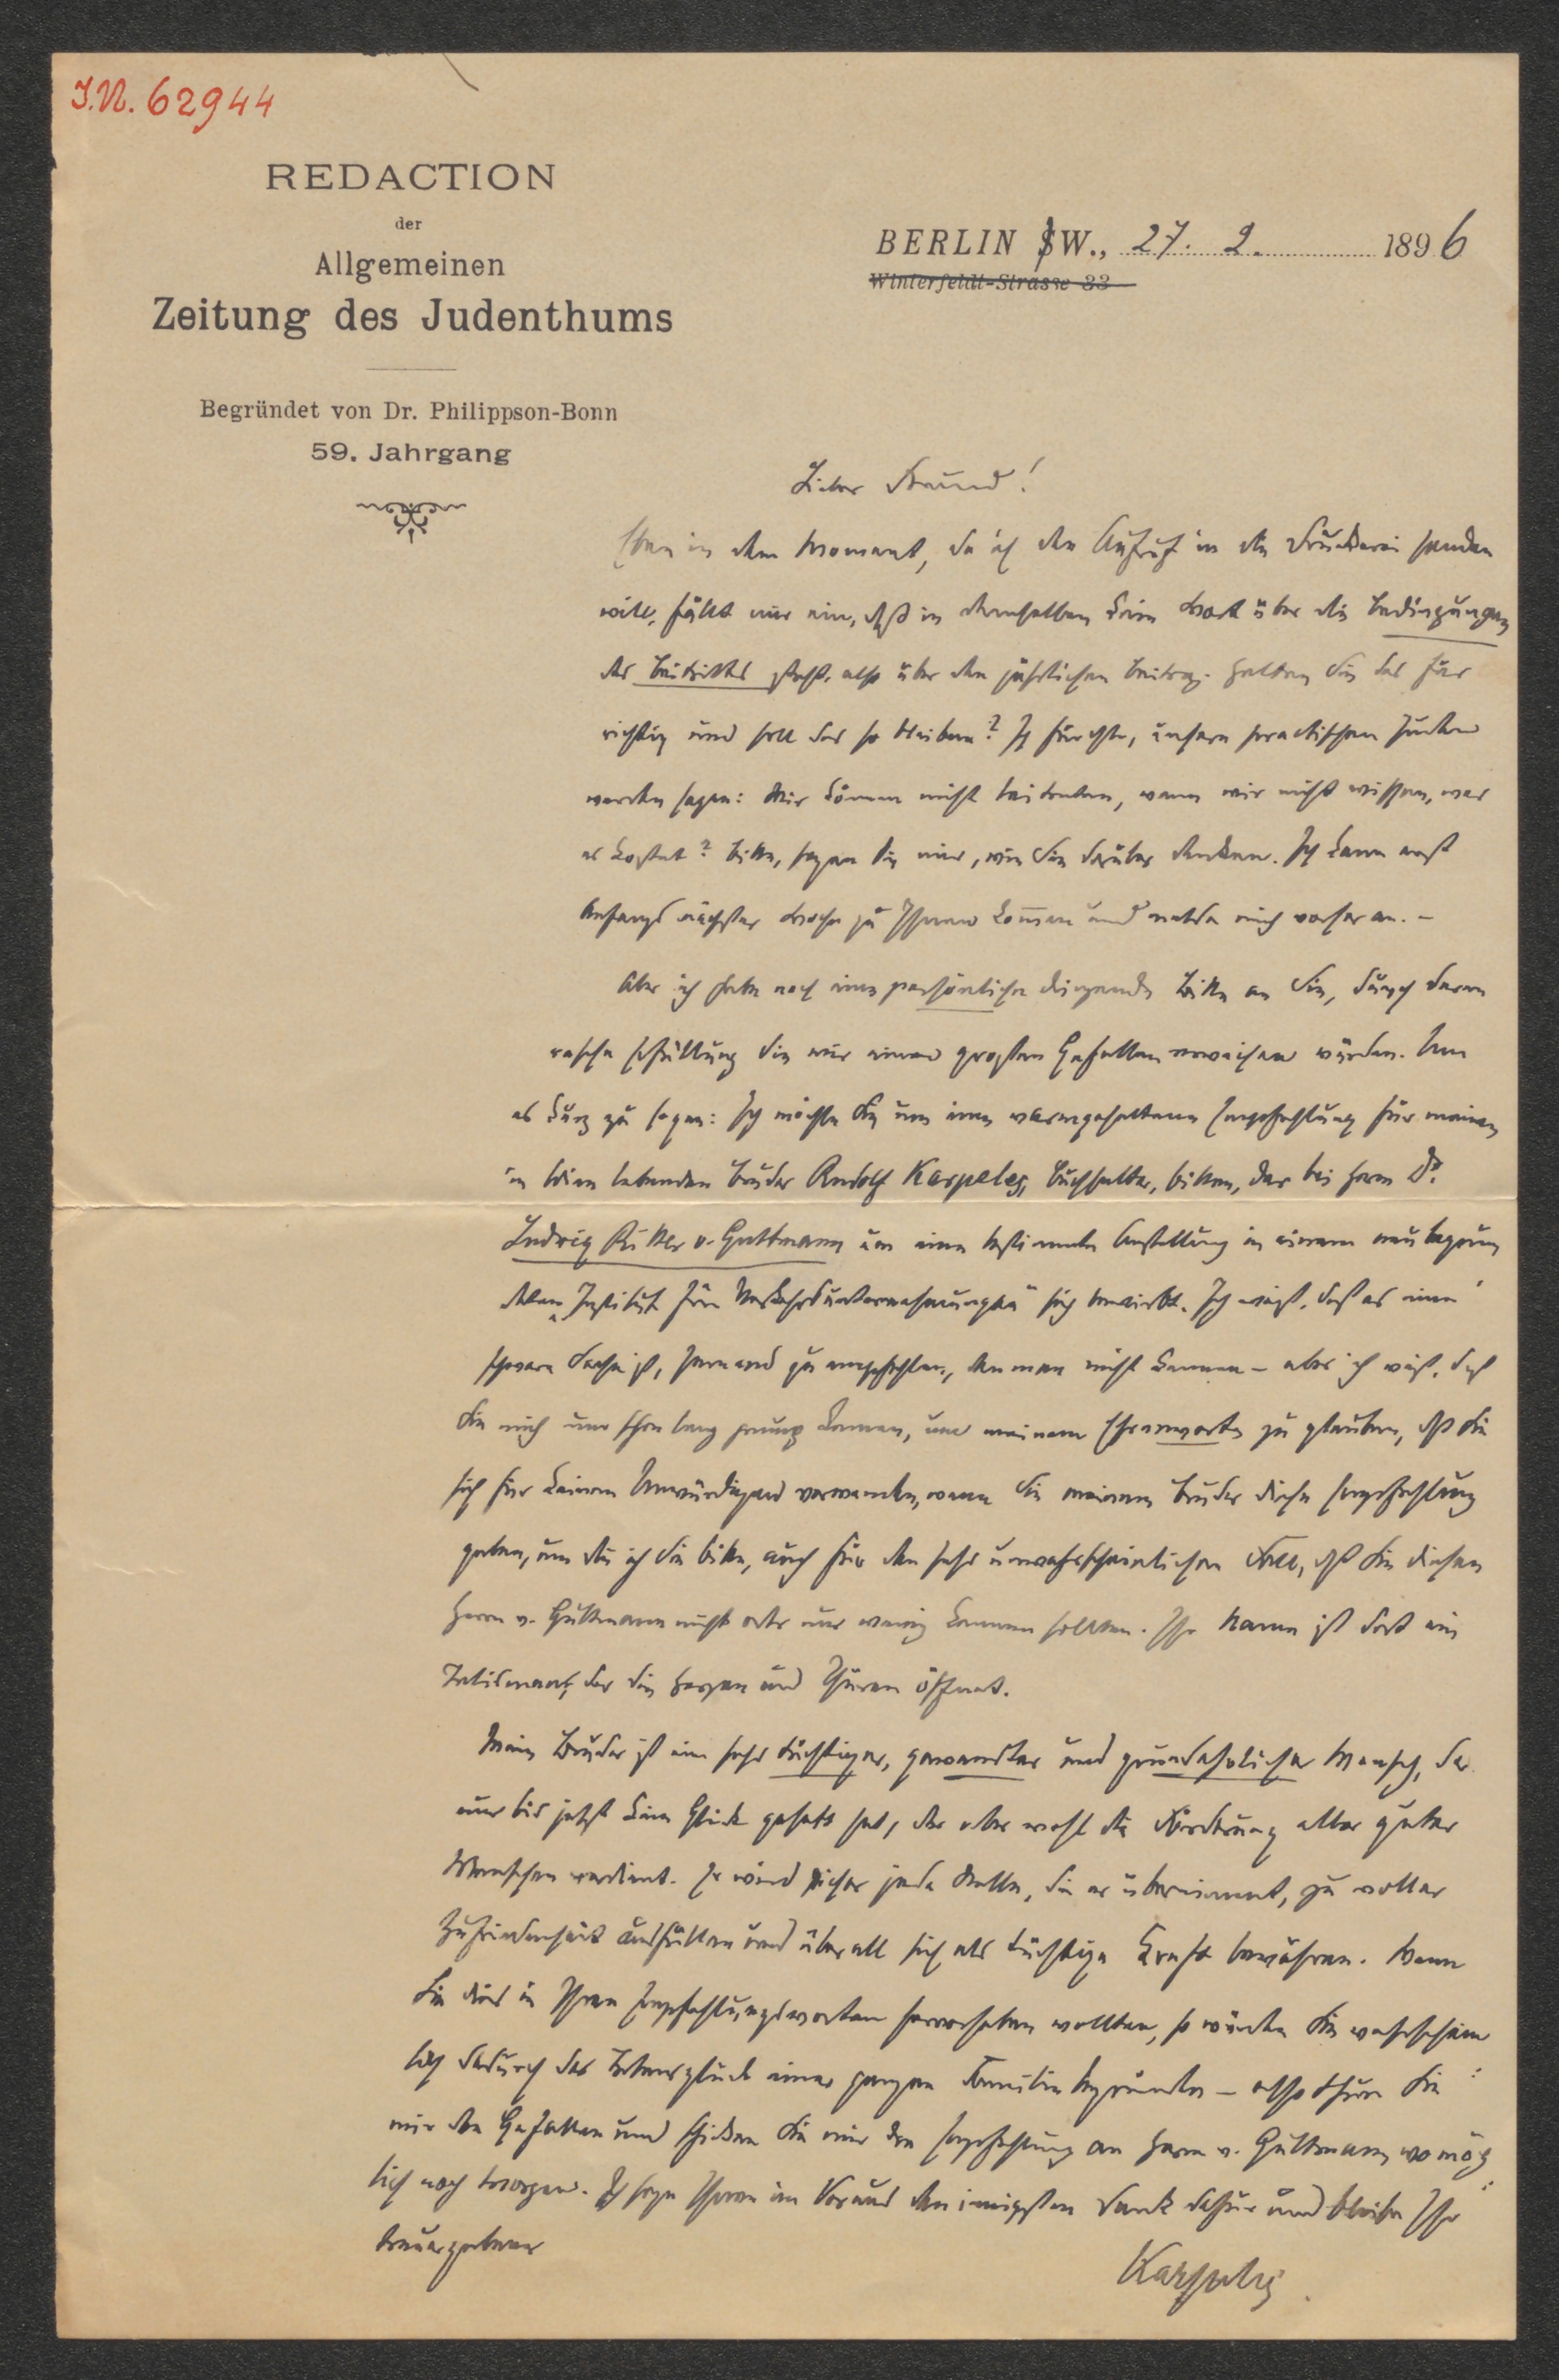 I.N. 62944
REDACTION
der
Allgemeinen
Zeitung des Judenthums
Begründet von Dr. Philippson-Bonn
59. Jahrgang
BERLIN SW., 27. 2. 1896
Winterfeldt-Strasse 33
Lieber Freund!
Eben in dem Moment, da ich den Aufruf in die Druckerei senden
will, fällt mir ein, daß in demselben kein Wort über die Bedingungen
des Beitritts steht, also über den jährlichen Beitrag. Halten Sie das für
richtig und soll das so bleiben? Ich fürchte, unsere practischen Juden
werden sagen: Wir können nicht beitreten, wenn wir nicht wissen, was
es kostet? Bitte, sagen Sie mir, wie Sie darüber denken. Ich kann erst
Anfangs nächster Woche zu Ihnen kommen und melde mich vorher an. –
Aber ich habe noch eine persönliche dringende Bitte an Sie, durch deren
rasche Erfüllung Sie mir einen großen Gefallen erweisen würden. Um
es kurz zu sagen: Ich möchte Sie um eine warmgehaltene Empfehlung für meinen
in Wien lebenden Bruder Rudolf Karpeles, Buchhalter, bitten, der bei Herrn Dr.
Ludwig Ritter v. Guttmann um eine bestimmte Anstellung in einem neu begrün
deten „Institut für Verkehrsunternehmungen" sich bewirbt. Ich weiß, daß es eine
schwere Sache ist, Jemand zu empfehlen, den man nicht kennt – aber ich weiß, daß
Sie mich nun schon lang genug kennen, um meinem Ehrenworte zu glauben, daß Sie
sich für keinen Unwürdigen verwenden, wenn Sie meinem Bruder diese Empfehlung
geben, um die ich Sie bitte, auch für den sehr unwahrscheinlichen Fall, daß Sie diesen
Herrn v. Guttmann nicht oder nur wenig kennen sollten. Ihr Name ist dort ein
Talisman, der die Herzen und Thüren öffnet.
Mein Bruder ist ein sehr tüchtiger, gewandter und grundehrlicher Mensch, der
nur bis jetzt kein Glück gehabt hat, der aber wohl die Förderung aller guter
Menschen verdient. Er wird sicher jede Stelle, die er übernimmt, zu voller
Zufriedenheit ausfüllen und überall sich als tüchtige Kraft bewähren. Wenn
Sie dies in Ihren Empfehlungsworten hervorheben wollten, so würden Sie wahrschein
lich dadurch das Lebensglück einer ganzen Familie begründen – also thun Sie
mir den Gefallen und schicken Sie mir die Empfehlung an Herrn v. Guttmann womög
lich noch morgen. Ich sage Ihnen im Voraus den innigsten Dank dafür und bleibe Ihr
treuergebener
Karpeles